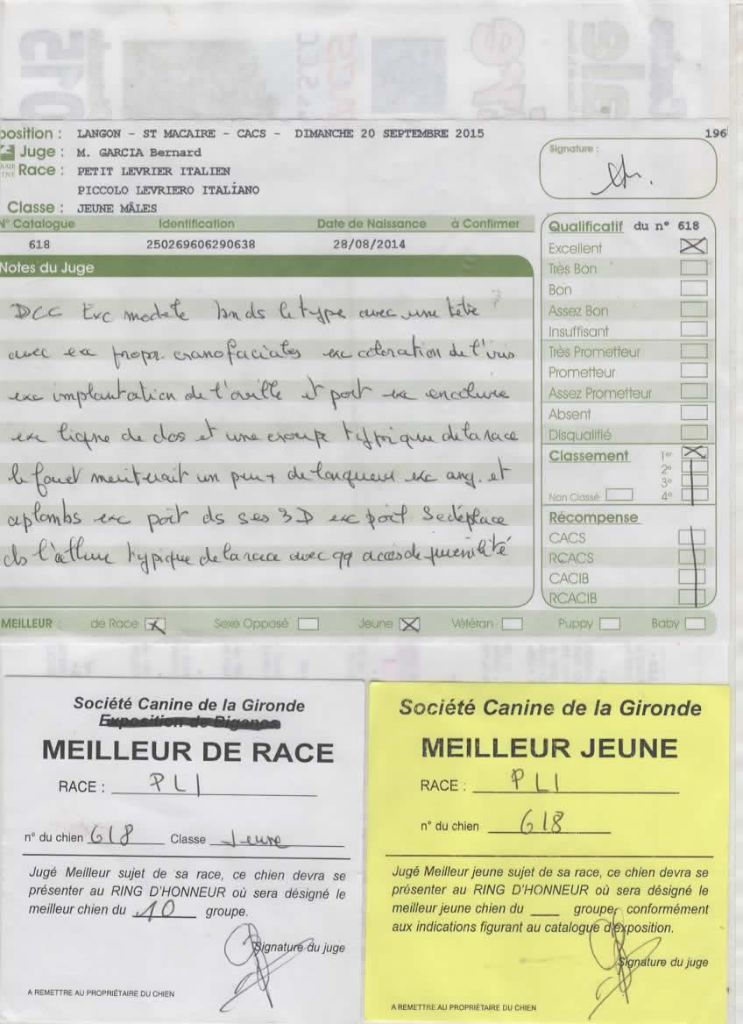 position : LANGON - ST MACAIRE - CACS - DIMANCHE 20 SEPTEMBRE 2015 196
Juge : M. GARCIA Bernard
Signature :
Race : PETIT LEVRIER ITALIEN
PICCOLO LEVRIERO ITALIANO
Classe : JEUNE MÂLES
N° Catalogue Identification Date de Naissance à Confirmer
618 250269606290638 28/08/2014
Qualificatif du n° 618
Excellent
Très Bon
Bon
Assez Bon
Insuffisant
Très Prometteur
Prometteur
Assez Prometteur
Absent
Disqualifié
Classement 1er
2e
3e
Non Classé 4e
Récompense
CACS
RCACS
CACIB
RCACIB
Notes du Juge
DCC Exc modele ds le type avec une tête
avec ex propr. craniofaciales exc coloration de l'iris
exc implantation de l'oreille et port exc encolure
ex ligne de dos et une croupe typique de la race
le fouet meriterait un peu + de longueur exc ang. et
aplombs exc port ds ses 3D exc port Se déplace
ds l'allure typique de la race avec qq accès de juvénilité
MEILLEUR : de Race Sexe Opposé Jeune Vétéran Puppy Baby
Société Canine de la Gironde
Exposition de Biganos
MEILLEUR DE RACE
RACE : PLI
n° du chien 618 Classe Jeune
Jugé Meilleur sujet de sa race, ce chien devra se
présenter au RING D'HONNEUR où sera désigné le
meilleur chien du 10 groupe.
Signature du juge
A REMETTRE AU PROPRIÉTAIRE DU CHIEN
Société Canine de la Gironde
MEILLEUR JEUNE
RACE : PLI
n° du chien 618
Jugé Meilleur jeune sujet de sa race, ce chien devra se
présenter au RING D'HONNEUR où sera désigné le
meilleur jeune chien du ___ groupe, conformément
aux indications figurant au catalogue d'exposition.
Signature du juge
A REMETTRE AU PROPRIÉTAIRE DU CHIEN